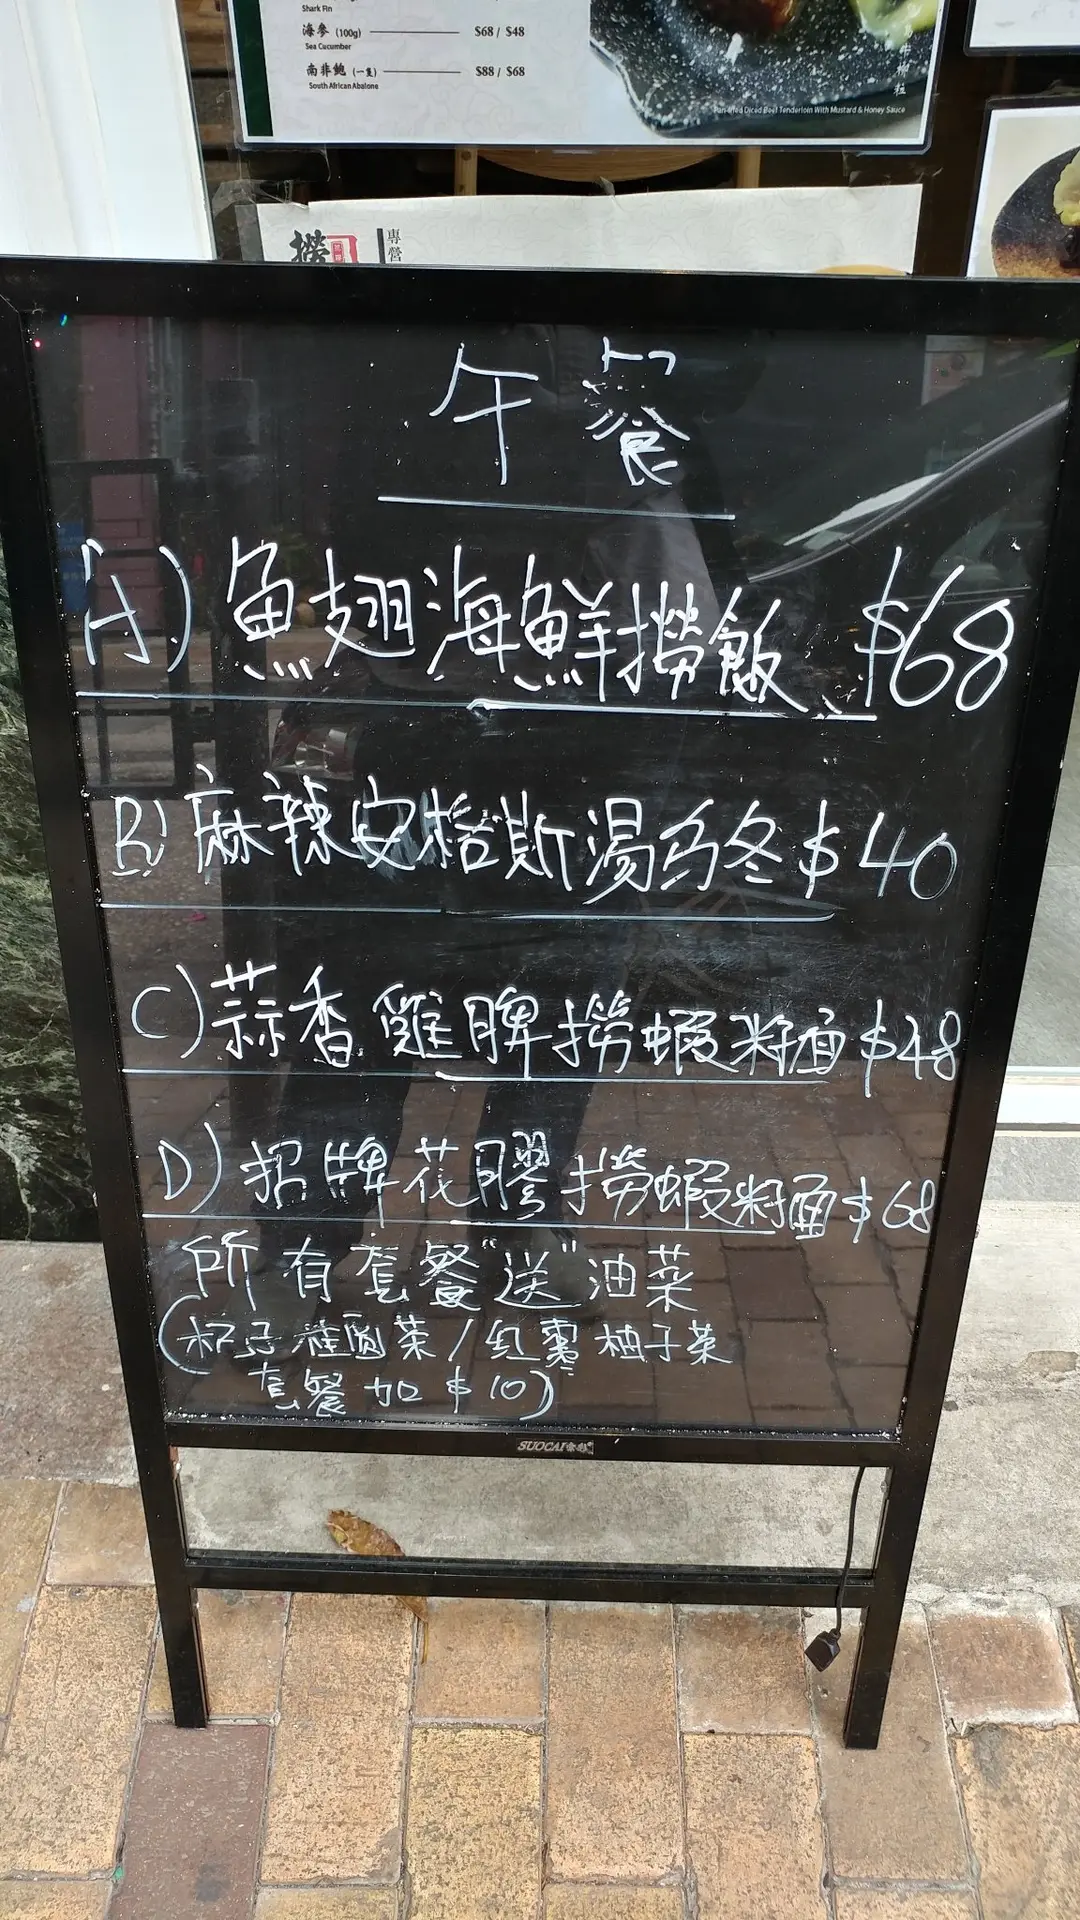 Shark Fin
海參 (100g) $68 / $48
Sea Cucumber
南非鮑 (一隻) $88 / $68
South African Abalone
Pan-fried Diced Beef Tenderloin With Mustard & Honey Sauce
撈
專營
午餐
A) 魚翅海鮮撈飯 $68
B) 麻辣安格斯湯烏冬 $40
C) 蒜香雞脾撈蝦籽面 $48
D) 招牌花膠撈蝦籽面 $68
所有套餐"送"油菜
(杞子桂圓茶/红棗柚子茶
套餐加$10)
SUOCAI索彩